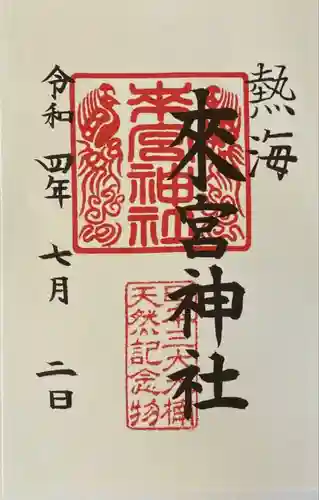 熱海
來宮神社
令和四年七月二日
來宮神社
天然記念物